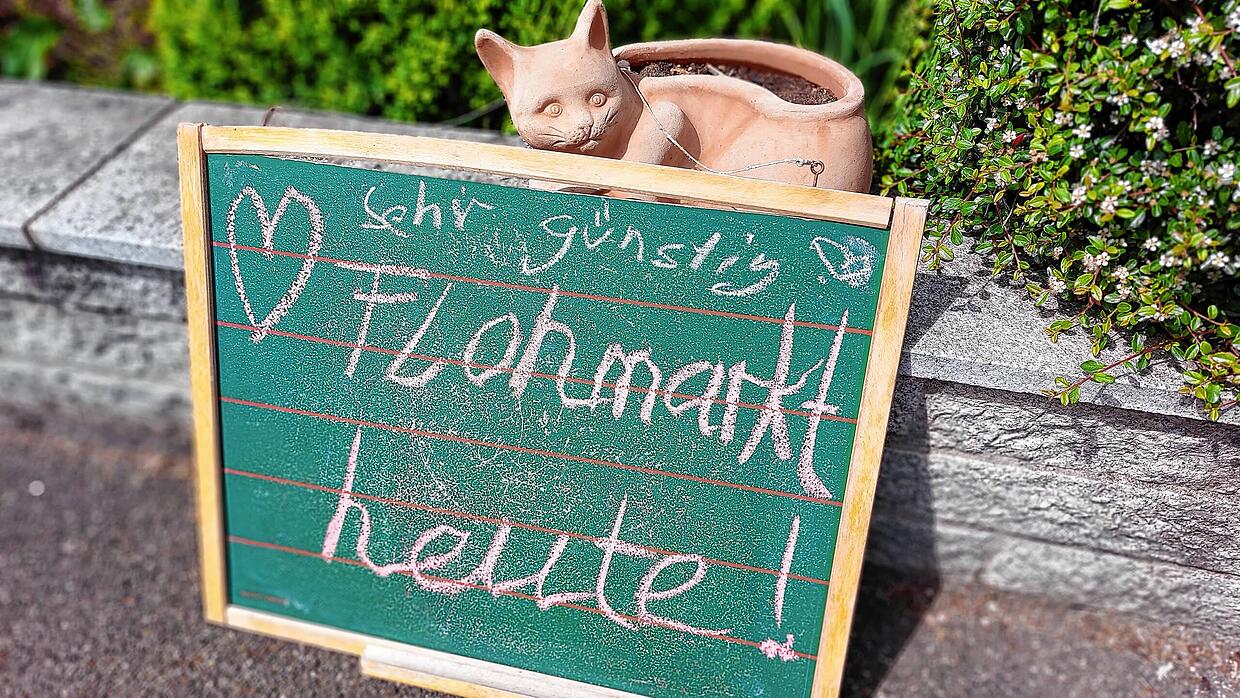 sehr günstig
Flohmarkt
heute!